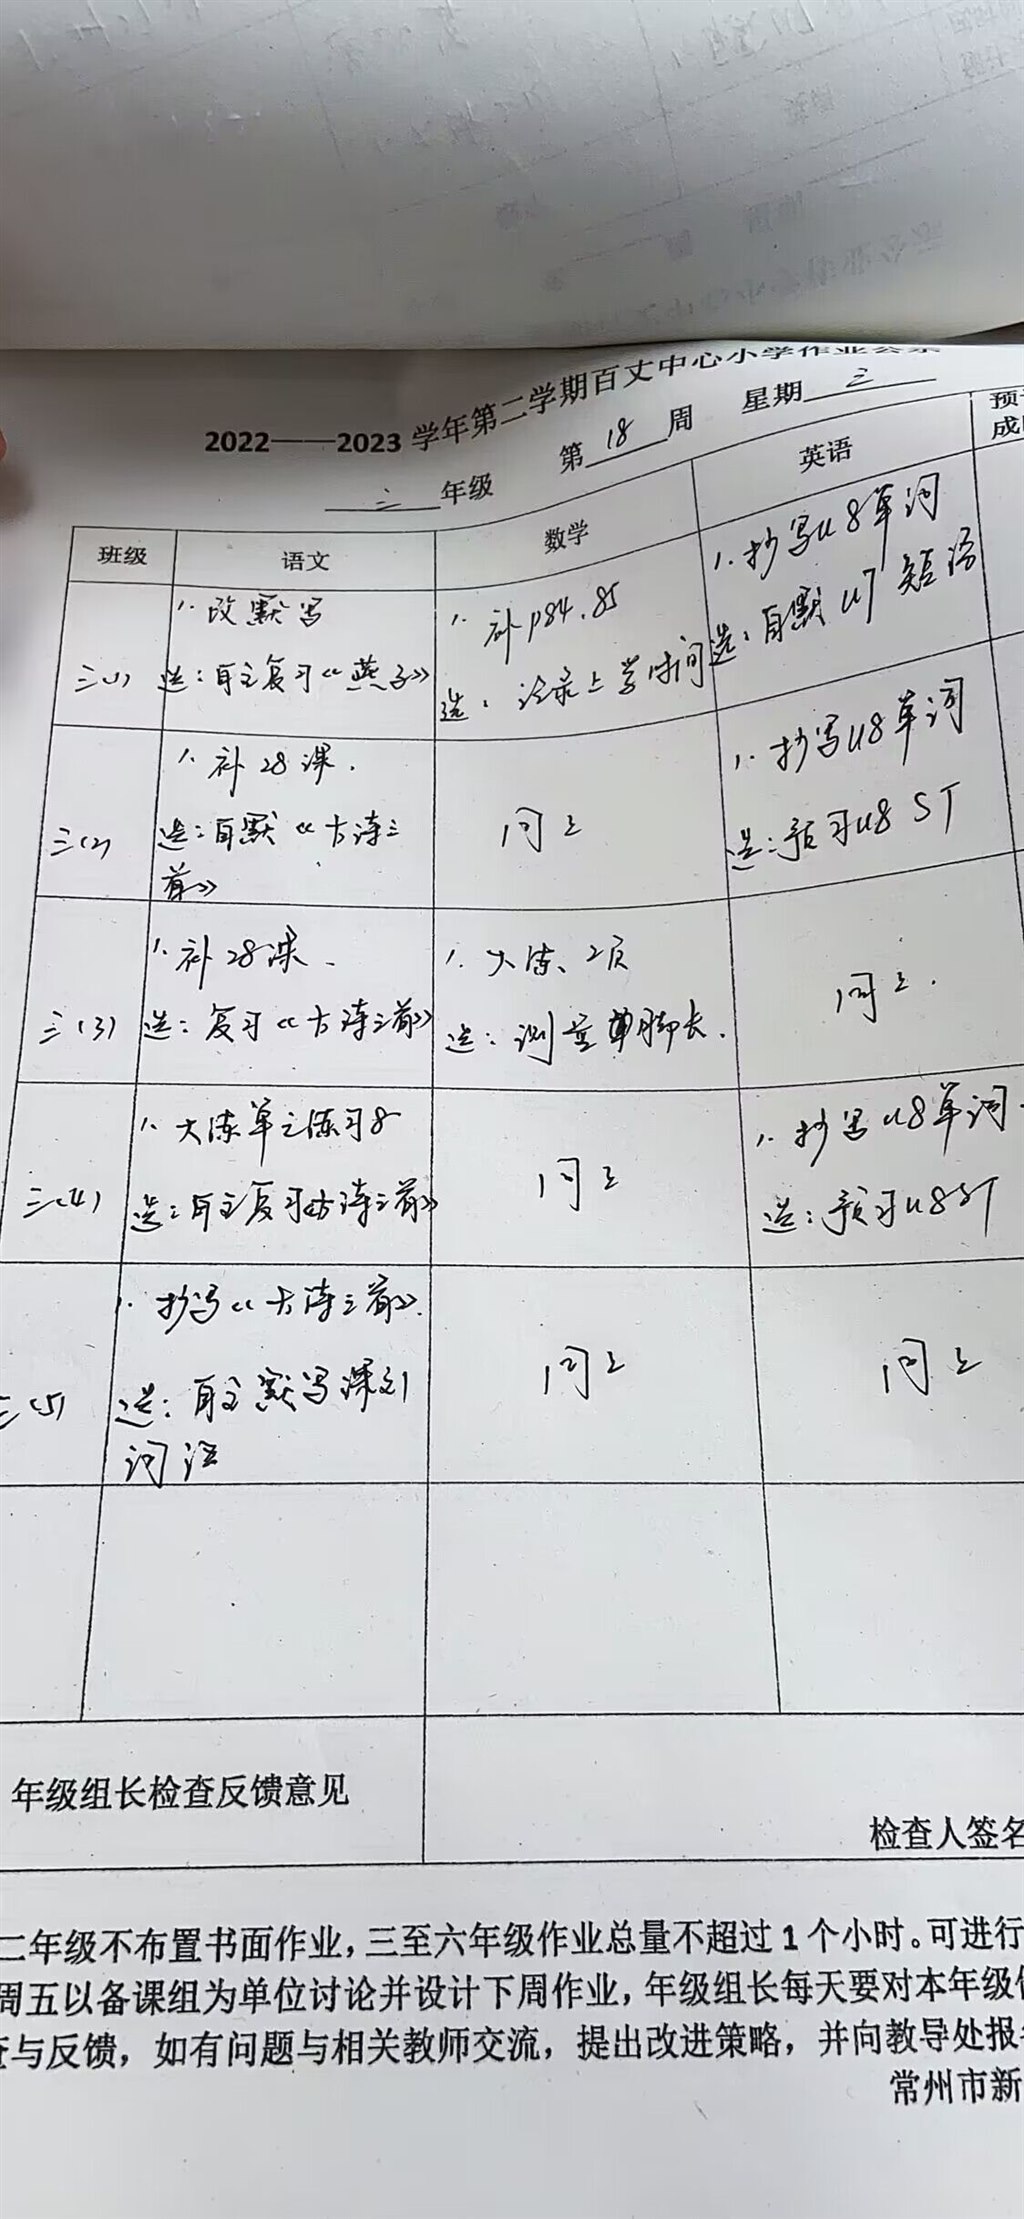 2022——2023 学年第二学期百丈中心小学作业公示
三 年级 第 18 周 星期 三
班级 语文 数学 英语
三(1)
1. 改默写
选：自主复习《燕子》
1. 补P84、85
选：记录上学时间
1. 抄写U8单词
选：自默U7短语
三(2)
1. 补28课.
选：自默《古诗三
首》
同上
1. 抄写U8单词
选：预习U8 ST
三(3)
1. 补28课、
选：复习《古诗三首》
1. 大练、2页
选：测量单脚长.
同上.
三(4)
1. 大练单元练习8
选：自主复习《古诗三首》
同上
1. 抄写U8单词
选：预习U8ST
三(5)
1. 抄写《古诗三首》.
选：自主默写课文
词语
同上
同上
年级组长检查反馈意见
检查人签名
二年级不布置书面作业，三至六年级作业总量不超过 1 个小时。可进行
周五以备课组为单位讨论并设计下周作业，年级组长每天要对本年级
与反馈，如有问题与相关教师交流，提出改进策略，并向教导处报
常州市新